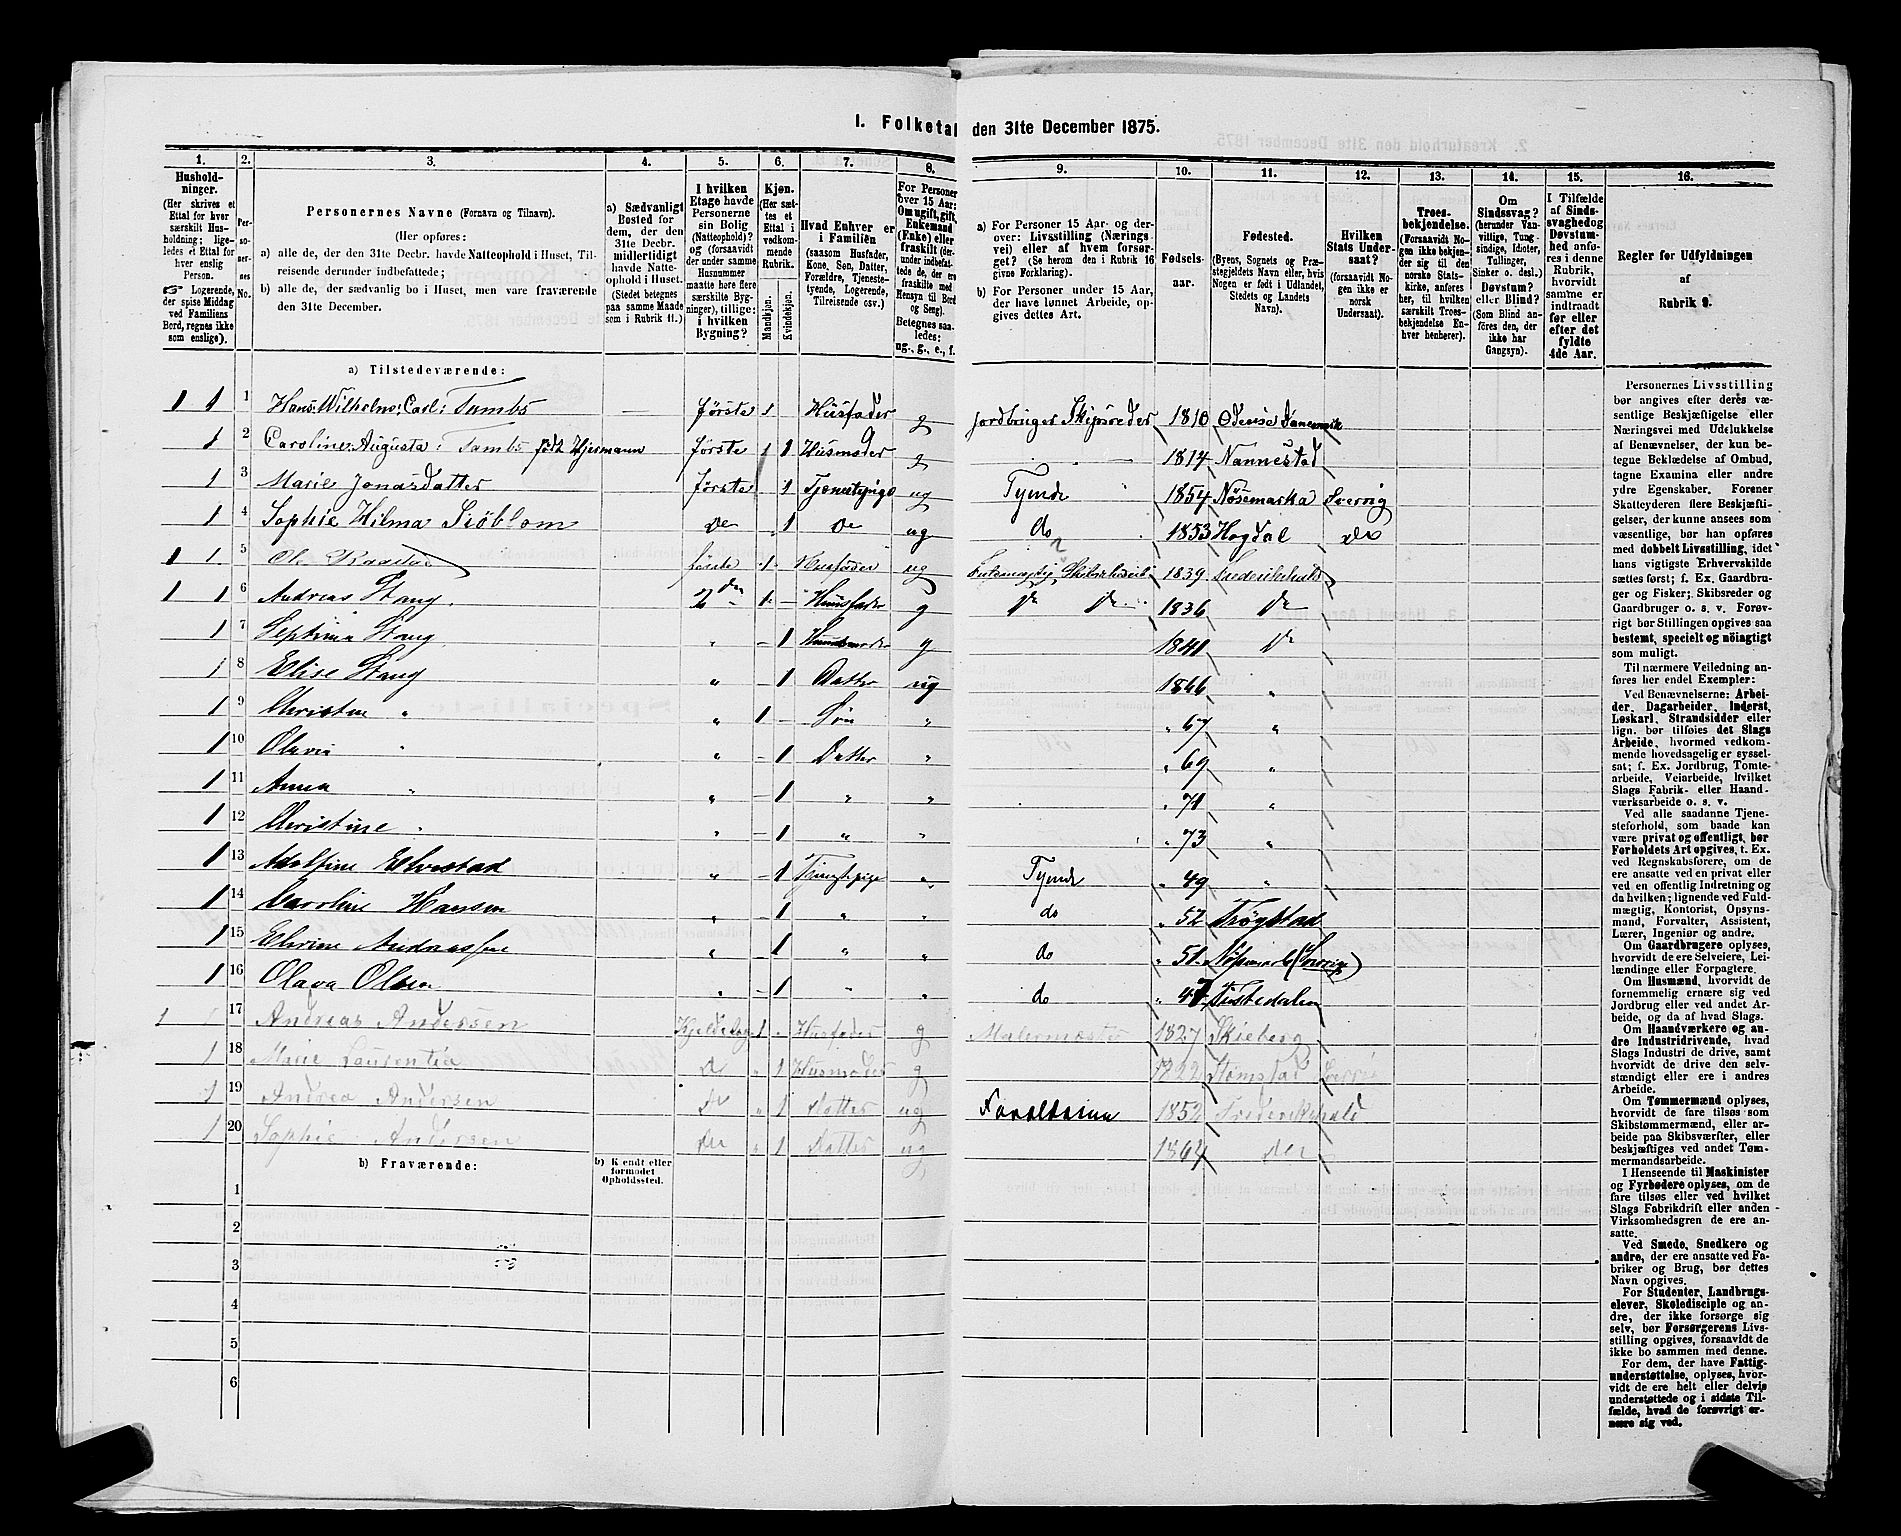 I. Folketal den 31te December 1875.
1. 2. 3. 4. 5. 6. 7. 8. 9. 10. 11. 12. 13. 14. 15. 16.
Husholdninger.
(Her skrives et Ettal for hver særskilt Husholdning; ligeledes et Ettal for hver enslig Person.
☞ Logerende, der spise Middag ved Familiens Bord, regnes ikke som enslige).
Personernes No.
Personernes Navne (Fornavn og Tilnavn).
(Her opføres:
a) alle de, der den 31te Decbr. havde Natteophold i Huset, Tilreisende derunder indbefattede;
b) alle de, der sædvanlig bo i Huset, men vare fraværende den 31te December.
a) Sædvanligt Bosted for dem, der den 31te Decbr. midlertidigt havde Natteophold i Huset.
(Stedet betegnes paa samme Maade som i Rubrik 11.)
I hvilken Etage havde Personerne sin Bolig (Natteophold)? og (forsaavidt der under samme Husnummer maatte høre flere særskilte Bygninger), tillige: i hvilken Bygning?
Kjøn. (Her sættes et Ettal i vedkommende Rubrik.
Mandkjøn. Kvindekjøn.
Hvad Enhver er i Familien
(saasom Husfader, Kone, Søn, Datter, Forældre, Tjenestetyende, Logerende, Tilreisende osv.)
For Personer over 15 Aar: Om ugift, gift, Enkemand (Enke) eller fraskilt
Betegnes saaledes: ug., g., e., f.
a) For Personer 15 Aar- og derover: Livsstilling (Næringsvei) eller af hvem forsørget? (Se herom den i Rubrik 16 givne Forklaring).
b) For Personer under 15 Aar, der have lønnet Arbeide, opgives dettes Art.
Fødselsaar.
Fødested.
(Byens, Sognets og Præstegjeldets Navn eller, hvis Nogen er født i Udlandet, Stedets og Landets Navn).
Hvilken Stats Undersaat?
(forsaavidt Nogen ikke er norsk Undersaat).
Troesbekjendelse.
(Forsaavidt Nogen ikke bekjender sig til den norske Statskirke, anføres her, til hvilken særskilt Troesbekjendelse Enhver henhører).
Om Sindssvag? (herunder Vanvittige, Tungsindige, Idioter, Tullinger, Sinker o. desl.) Døvstum? eller Blind?
(Som Blind anføres den, der ikke har Gangsyn).
I Tilfælde af Sindssvaghed og Døvstumhed anføres i denne Rubrik, hvorvidt samme er indtraadt før eller efter det fyldte 4de Aar.
Regler for Udfyldningen af Rubrik 9.
a) Tilstedeværende:
1 1 1 Hans Wilhelm Carl: Tambs — Første 1 Husfader g Jordbruger Skipsreder 1810 Odense Danemark
1 2 Caroline Augusta: Tambs født Hjermann Første 1 Husmoder g 1814 Nannestad
1 3 Marie Jonasdatter Første 1 Tjenestepige ug Tyende 1854 Nøsemarka Sverrig
1 4 Sophie Hilma Siöblom Do 1 Do ug do 1853 Hogdal do
1 1 5 første 1 Husfader ug 1839 Frederikshald
1 1 6 Andreas Stang 2den 1 — Huusfader g Do Do 1836 Do
1 7 Septima Stang " — 1 Huusmoder g 1841 Do
1 8 Elise Stang " — 1 Datter ug 1866 "
1 9 Christen " " 1 — Søn " " 67 "
1 10 Olava " " — 1 Datter " " 69 "
1 11 Anna " " — 1 " " " 71 "
1 12 Christine " " — 1 " " " 73 "
1 13 Adolfine Elvestad " — 1 Tjenestepige " Tyende " 49 "
1 14 Caroline Hansen " — 1 " " do " 52 Trøgstad
1 15 " — 1 " " do " 51 Nøsemark (Sverrig)
1 16 Olava Olsen " — 1 " " do " 47 Tistedalen
1 1 17 Andreas Andersen Kjelderetag 1 Husfader g Malermester 1827 Skieberg
1 18 Marie Laurentia Do " 1 Husmoder g 1822 Strømstad Sverrig
1 19 Andrea Andersen Do " 1 Datter ug 1852 Frederikshald
1 20 Sophie Andersen Do " 1 Datter ug 1864 do
b) Fraværende:
b) Kjendt eller formodet Opholdssted.
1
2
3
4
5
6
Personernes Livsstilling bør angives efter deres væsentlige Beskjæftigelse eller Næringsvei med Udelukkelse af Benævnelser, der kun betegne Beklædelse af Ombud, tagne Examina eller andre ydre Egenskaber. Forener Skatteyderen flere Beskjæftigelser, der kunne ansees som væsentlige, bør han opføres med dobbelt Livsstilling, idet hans vigtigste Erhvervskilde sættes først; f. Ex. Gaardbruger og Fisker; Skibsreder og Gaardbruger o. s. v. Forøvrigt bør Stillingen opgives saa bestemt, specielt og nöiagtigt som muligt.
Til nærmere Veiledning anføres her endel Exempler:
Ved Benævnelserne: Arbeider, Dagarbeider, Inderst, Løskarl, Strandsidder eller lign. bør tilføies det Slags Arbeide, hvormed vedkommende hovedsagelig er sysselsat; f. Ex. Jordbrug, Tomtearbeide, Veiarbeide, hvilket Slags Fabrik- eller Haandværksarbeide o. s. v.
Ved alle saadanne Tjenesteforhold, som baade kan være privat og offentligt, bør Forholdets Art opgives, t. Ex. ved Regnskabsførere, om de ere ansatte ved en privat eller ved en offentlig Indretning og da hvilken; lignende ved Fuldmægtig, Kontorist, Opsynsmand, Forvalter, Assistent, Lærer, Ingeniør og andre.
Om Gaardbrugere oplyses, hvorvidt de ere Selveiere, Leilændinge eller Forpagtere.
Om Husmænd, hvorvidt de fornemmelig ernære sig ved Jordbrug eller ved andet Arbeide, og da af hvad Slags.
Om Haandværkere og andre Industridrivende, hvad Slags Industri de drive, samt hvorvidt de drive den selvstændigt eller ere i andres Arbeide.
Om Tømmermænd oplyses, hvorvidt de fare tilsøs som Skibstømmermænd, eller arbeide paa Skibsværfter, eller beskjæftiges ved andet Tømmermandsarbeide.
I Henseende til Maskinister og Fyrbødere oplyses, om de fare tilsøs eller ved hvilket Slags Fabrikdrift eller anden Virksomhedsgren de ere ansatte.
Ved Smede, Snedkere og andre, der ere ansatte ved Fabriker og Brug, bør dettes Navn opgives.
For Studenter, Landbrugselever, Skoledisciple og andre, der ikke forsørge sig selv, bør Forsørgerens Livsstilling opgives, forsaavidt de ikke bo sammen med denne.
For dem, der have Fattigunderstøttelse, oplyses, hvorvidt de ere helt eller delvis understøttede og i sidste Tilfælde, hvad de forøvrigt ernære sig ved.